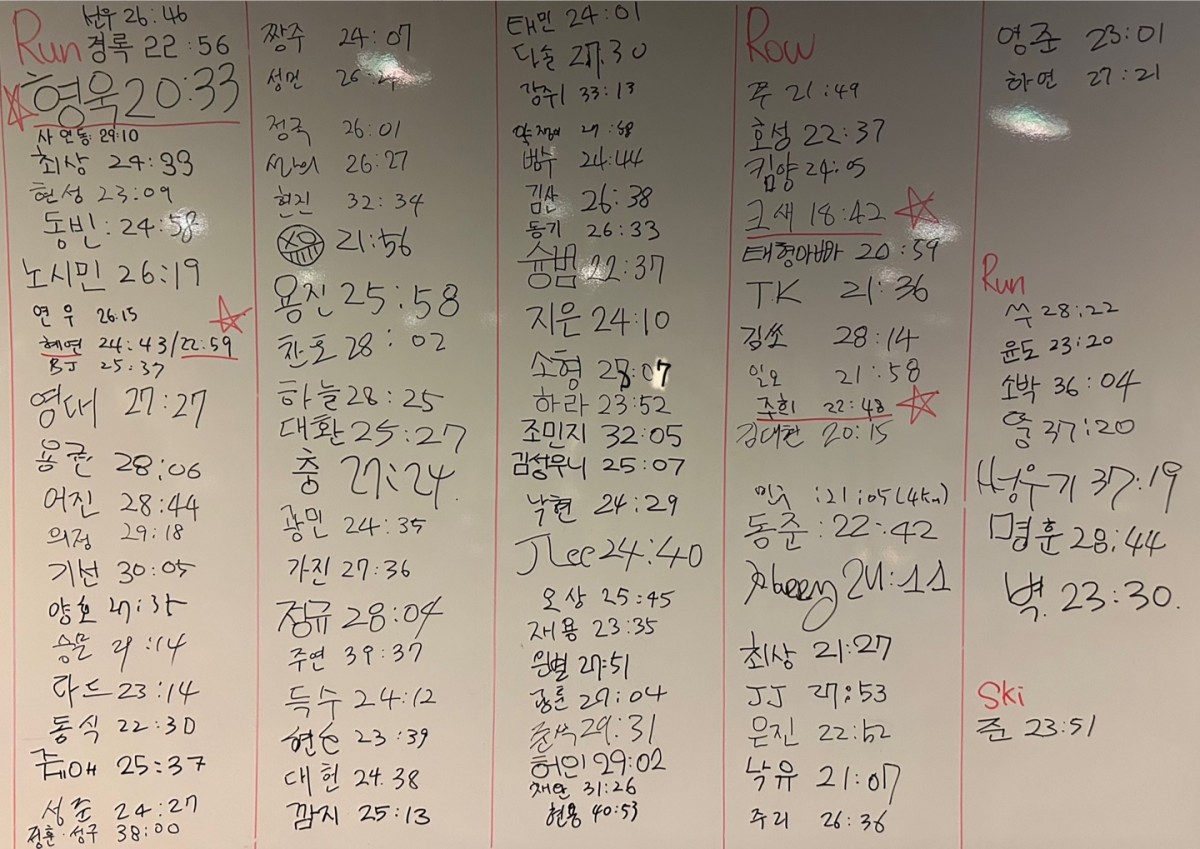 선우 26:46
Run 경록 22:56
형욱 20:33
사언동: 29:10
최상 24:33
현성 23:09
동빈: 24:58
노시민 26:19
연우 26:15
혜연 24:43/22:59
BJ 25:37
영대 27:27
용균 28:06
어진 28:44
의정 29:18
기선 30:05
양호
승문
라드 23:14
동식 22:30
25:37
성준 24:27
정훈·성구 38:00
짱주 24:07
성민
정국 26:01
26:27
현진 32:34
XO 21:56
용진 25:58
찬호 28:02
하늘 28:25
대환 25:27
충 27:24
광민 24:35
가진 27:36
정규 28:04
주연 39:37
득수 24:12
현순 23:39
대헌 24.38
깜지 25:13
태민 24:01
다솔 27.30
강쥐 33:13
27:58
범수 24:44
김산 26:38
동기 26:33
승범 22:37
지은 24:10
소형 28:07
하라 23:52
조민지 32:05
김성우니 25:07
낙현 24:29
JLee 24:40
오상 25:45
재용 23:35
원별 27:51
29:04
준석 29:31
허인 29:02
재안 31:26
현용 40:53
Row
쭈 21:49
호성 22:37
킴양 24:05
크새 18:42
태형아빠 20:59
TK 21:36
김쏘 28:14
일오 21:58
주희 22:48
김대현 20:15
민구 :21:05 (4km)
동준: 22:42
24:11
최상 21:27
JJ 27:53
은진 22:52
낙유 21:07
주리 26:36
영준 23:01
하연 27:21
Run
쑤 28:22
윤도 23:20
소박 36:04
37:20
성우기 37:19
명훈 28:44
벽. 23:30.
Ski
준 23:51